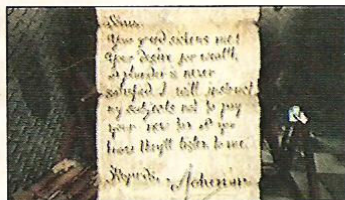 Sirrus,
Your greed sickens me!
Your desire for wealth,
& plunder is never
satisfied. I will instruct
my subjects not to pay
your new tax. &
know they'll listen to me.
Regards, Achenar